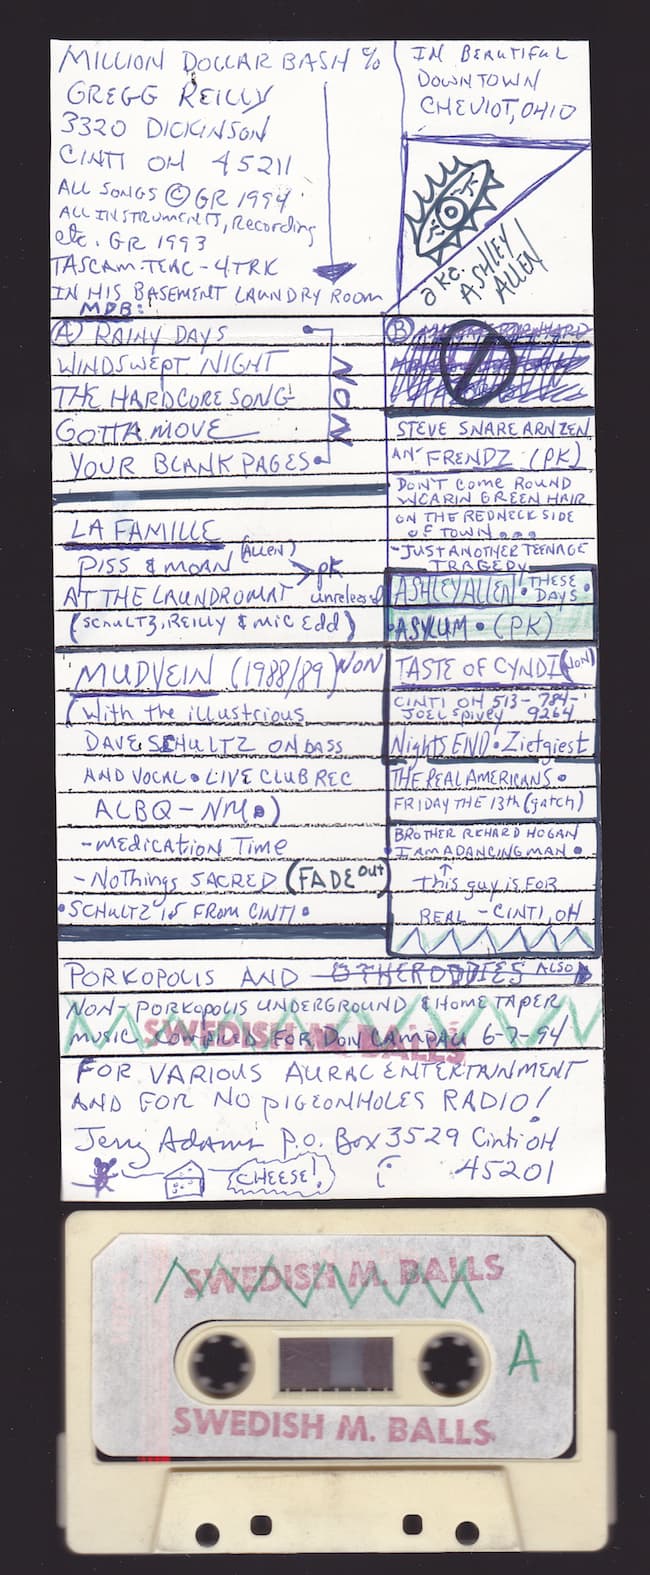 MILLION DOLLAR BASH %
GREGG REILLY
3320 DICKINSON
CINTI OH 45211
ALL SONGS © GR 1994
ALL INSTRUMENTS, Recording
etc. GR 1993
TASCAM-TEAC-4TRK
IN HIS BASEMENT LAUNDRY ROOM
IN BEAUTIFUL
DOWNTOWN
CHEVIOT, OHIO
a.k.a.
ASHLEY
ALLEN
MDB:
(A) RAINY DAYS
WINDSWEPT NIGHT
THE HARDCORE SONG
GOTTA MOVE
YOUR BLANK PAGES
NON
LA FAMILLE
(ALLEN)
PISS & MOAN
>pk
AT THE LAUNDROMAT unreleased
(SCHULTZ, REILLY & MIC Edd)
MUDVEIN (1988/89) NON
(with the illustrious
DAVE SCHULTZ ON BASS
AND VOCAL • LIVE CLUB REC
ALBQ - NM.)
-MEDICATION TIME
-NOTHINGS SACRED (FADE out)
•SCHULTZ IS FROM CINTI•
(B)
STEVE SNARE ARNZEN
AN' FRENDZ (PK)
DON'T COME ROUND
WEARIN GREEN HAIR
ON THE REDNECK SIDE
OF TOWN...
-JUST ANOTHER TEENAGE
TRAGEDY
ASHLEY ALLEN • THESE DAYS •
ASYLUM • (PK)
TASTE OF CYNDI (NON)
CINTI OH 513-784-9264
JOEL SPIVEY
Nights END • Zietgiest
THE REAL AMERICANS •
FRIDAY THE 13th (gatch)
BROTHER RICHARD HOGAN
•I AM A DANCING MAN •
↑
this guy is FOR
REAL - CINTI, OH
PORKOPOLIS AND OTHER ODDIES ALSO
NON-PORKOPOLIS UNDERGROUND & HOME TAPER
MUSIC COMPILED FOR DON CAMPAU 6-7-94
SWEDISH M. BALLS
FOR VARIOUS AURAL ENTERTAINMENT
AND FOR NO PIGEONHOLES RADIO!
Jerry Adams P.O. Box 3529 Cinti OH
45201
CHEESE!
SWEDISH M. BALLS
A
SWEDISH M. BALLS